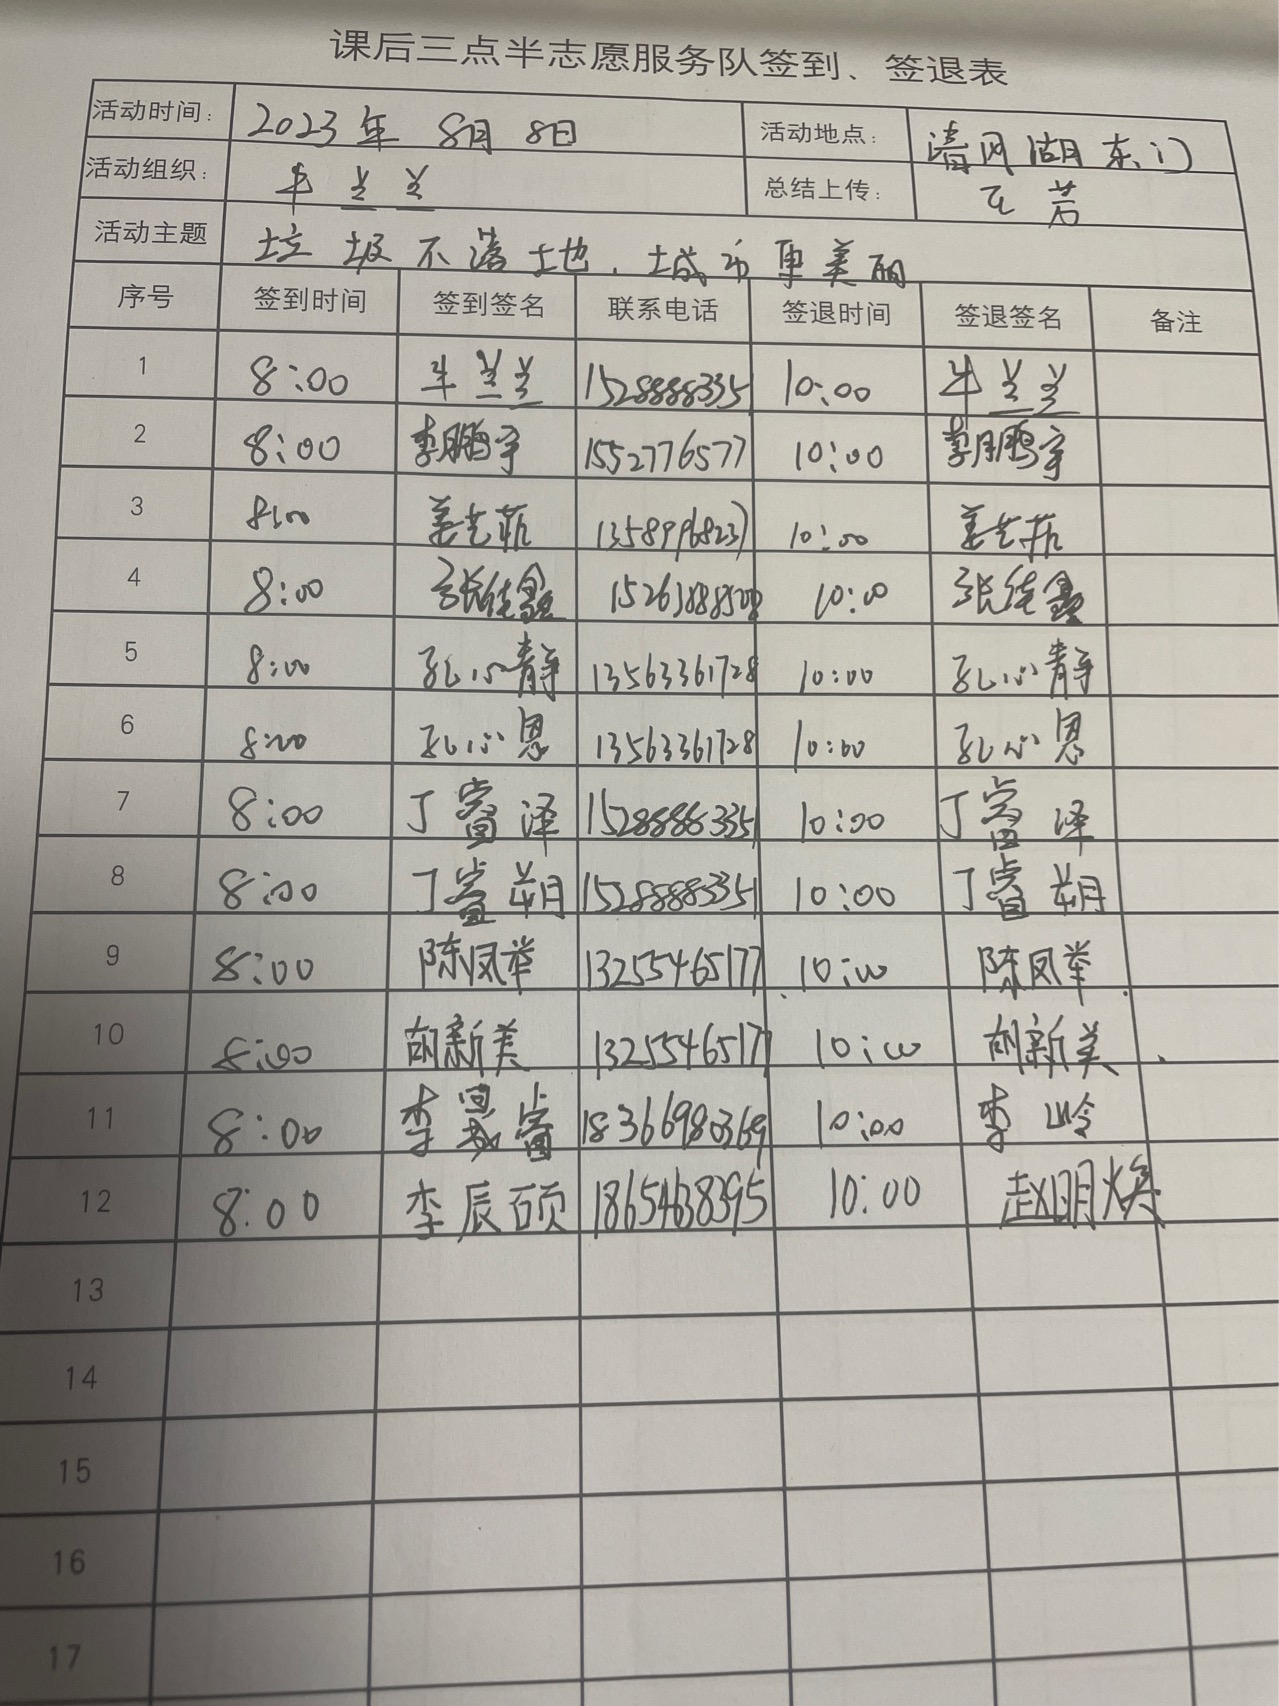 课后三点半志愿服务队签到、签退表
活动时间： 2023年 8月 8日 活动地点： 清风湖东门
活动组织： 牛兰兰 总结上传： 芳
活动主题 垃圾不落地，城市更美丽
序号 签到时间 签到签名 联系电话 签退时间 签退签名 备注
1 8:00 牛兰兰 1528888335 10:00 牛兰兰
2 8:00 李鹏宇 1552776577 10:00 李鹏宇
3 8:00 姜艺菲 10:00 姜艺菲
4 8:00 张佳鑫 10:00 张佳鑫
5 8:00 孔心静 13563361728 10:00 孔心静
6 8:00 孔心恩 13563361728 10:00 孔心恩
7 8:00 丁睿泽 15288883351 10:00 丁睿泽
8 8:00 丁睿萌 15288883351 10:00 丁睿萌
9 8:00 陈凤举 13255465177 10:00 陈凤举
10 8:00 胡新美 1325546517 10:00 胡新美
11 8:00 李晟睿 18366980369 10:00 李岭
12 8:00 李辰硕 18654638395 10:00 赵明焕
13
14
15
16
17